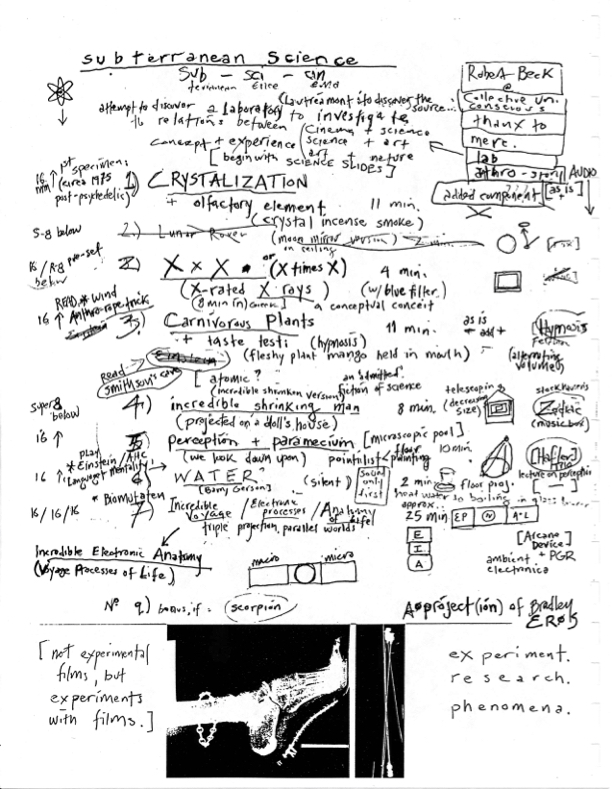 subterranean Science
Sub – sci – cin
terranean ence ema
attempt to discover a laboratory (Lautreamont:to discover the source...
16 relations between to investigate
concept + experience (cinema + science
science + art
art + nature
[begin with SCIENCE SLIDES]
Robert Beck
@
Collective Un.
conscious
thanx to
merc.
lab
added component
[as is +
AUDIO
16 mm ↑ 1st specimen: (circa 1975 post-psychedelic)
1) CRYSTALIZATION
+ olfactory element 11 min.
(crystal incense smoke)
S-8 below 2.) Lunar Rover (moon mirror version)
on ceiling
16/R-8 pre-set below
X X X or (X times X) 4 min.
(X-rated X rays) (w/blue filter)
(8 min in) a conceptual conceit
READ * Wind
Anthro-rope trick
16 ↑ 3) Carnivorous Plants 11 min. as is + add +
(Hypnosis
+ taste test: (hypnosis) (alternating volumes)
Einstein (fleshy plant mango held in mouth)
READ smithson's cave
[atomic? an "admitted"
(incredible shrunken version) fiction of science
super8 below 4.) incredible shrinking man 8 min.
telescoping (decreasing size)
stockhausen's
Zodiac
(music box)
(projected on a doll's house)
16 ↑ 5) Perception + paramecium [microscopic pool]
10 min.
(we look down upon) pointilist floor painting
[Hafler
lecture on perception]
play * Einstein/Attic
(Language Mentality)
16 ↑ 6) "WATER" (silent)
(Barry Gerson)
Sound only first
2 min floor proj.
heat water to boiling in glass
* Biomutaten
16/16/16 7) Incredible Voyage / Electronic processes / Anatomy of Life!
triple projection, parallel worlds
approx. 25 min EP N A·L
E
I
A
[Arcane Device]
+ PGR
ambient electronica
Incredible Electronic Anatomy
(Voyage Processes of Life)
macro micro
Nº 9) bonus, if: scorpion
A project(ion) of Bradley
EROS
[not experimental
films, but
experiments
with films.]
experiment.
research.
phenomena.